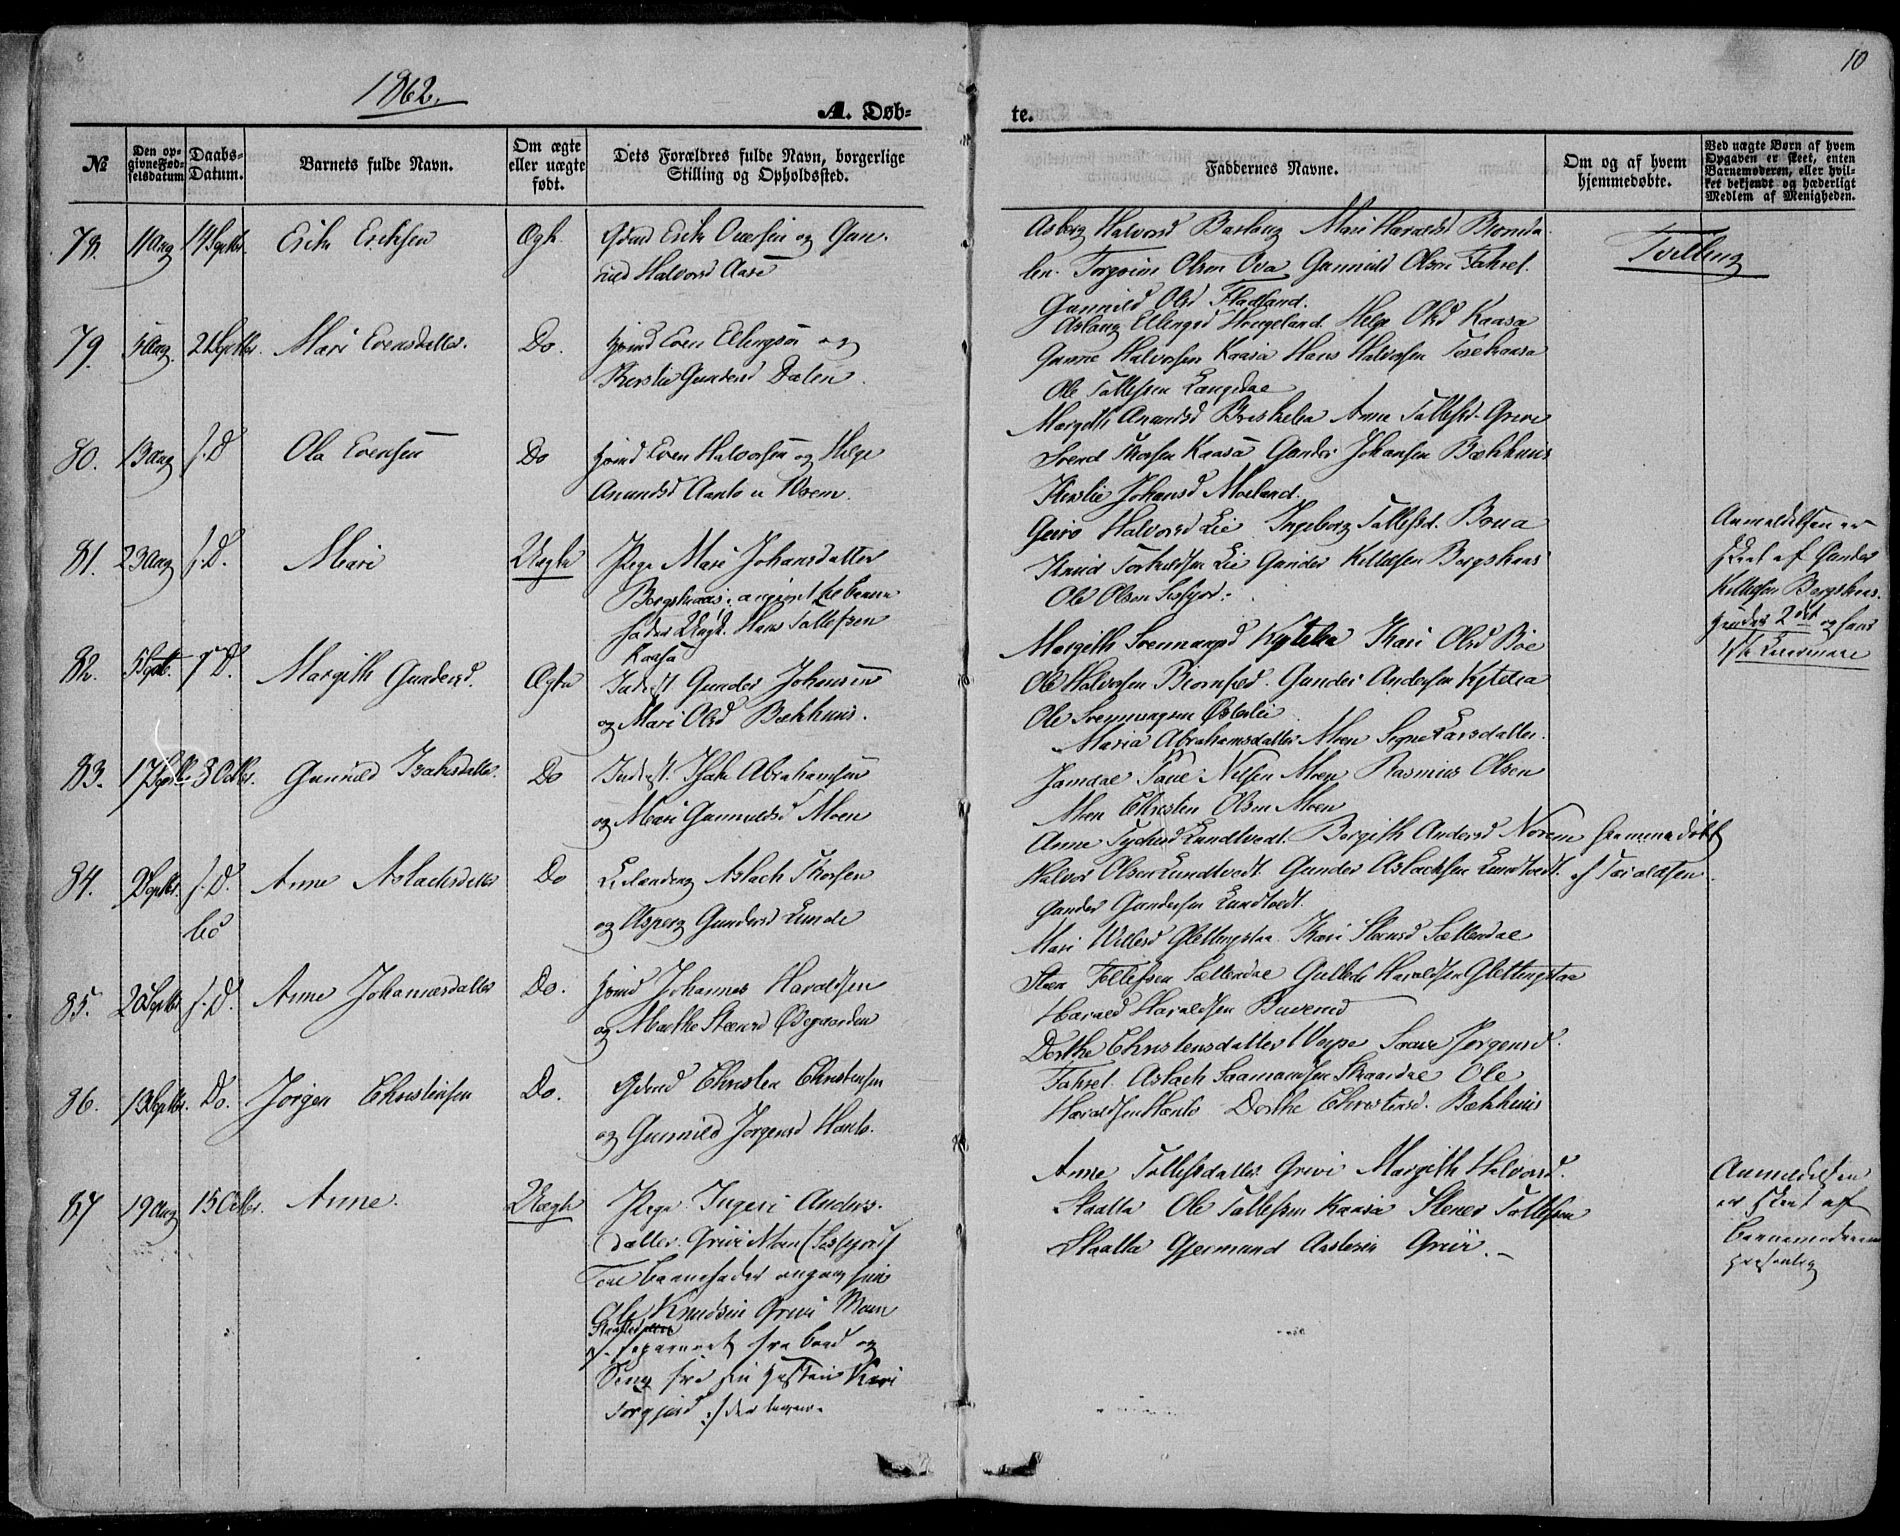 10
1862.
A. Døb-
te.
No
Den op-
givne Fød-
selsdatum
Daabs-
Datum.
Barnets fulde Navn.
Om ægte
eller uægte
født.
Dets Forældres fulde Navn, borgerlige
Stilling og Opholdssted.
Faddernes Navne.
Om og af hvem
hjemmedøbte.
Ved uægte Børn af hvem
Opgaven er skeet, enten
Barnemoderen, eller hvil-
ket bekjendt og hæderligt
Medlem af Menigheden.
78. 11 Aug 14 Septbr. Erik Eriksen Ægte
Erik og Gun-
hild Halvorsd Aase
Asberg Halvorsd Mari Haraldsd Bronda
len. Torgrim Olsen Ova Gunnild Olsen Tahsel.
Gunnild Olsd Fladland.
Tvilling
79. 5 Aug. 21 Septbr. Mari Evensdatter. Do.
Even Ellingsen og
Kerstie Gundersd Dalen.
Aslaug Ellingsd Haugeland. Helge Olsd Kaasa
Gunne Halvorsen Kaasa Hans Halvorsen Kaasa
Ole Tollefsen Langedae
80. 13 Aug s.D Ole Evensen Do
Even Halvorsen og Helge
Anundsd Hanto u Moen.
Margith Anundsd Anne Tollefsd. Grivi
Svend Thorsen Kaasa Gunder Johansen Bækhuus
Kirstie Johansd Moeland.
81. 23 Aug s.D. Mari Uægte
Pige Mari Johansdatter
Borgskaas, angivet til barne
fader Ungk. Hans Tollefsen
Kaasa
Guro Halvorsd Lie Ingeborg Tollefsd. Boua
Knud Torkildsen Lie Gunder Kittelsen Borgskaas
Ole Olsen
Anmeldelsen er
skeet af Gunder
Kittelsen Borgskaas.
hendes 2det og hans
1ste Leiermaal
82. 5 Septb. s.D. Margith Gundersd. Ægte
Inderst Gunder Johansen
og Mari Olsd Bækhuus.
Margith Svennungsd Kytelia Kari Olsd Bøe
Ole Halvorsen Gunder Andersen Kytelia
Ole Svennungsen Østerlie
83. 17 Septbr 3 Octbr. Gunnild Isaksdatter. Do
Inderst. Isak Abrahamsen
og Mari Gunnuldsd Moen
Maria Abrahamsdatter Moen Signe Larsdatter
Jamdal Nilsen Moen Rasmus Olsen
Moen Christen Olsen Moen
84. Septbr. s.D. Anne Aslaksdatter Do
bø
Aslach Thorsen
og Aasberg Gundersd Lunde
Anne Lundtvedt. Bergith Andersd Noram
Halvor Olsen Lundtvedt. Gunder Aslachsen Lundtvedt.
Gunder Gundersen Lundtvedt.
hjemmedøbt
af Taraldsen.
85. 20 Septbr s.D. Anne Johannesdatter Do.
Johannes Haraldsen
og Marthe Steensd Ødegaarden
Mari Glittingstaa. Kari Steensd Sættendae
Steen Tollefsen Sættendae Gulleik Haraldsen Glittingstaa
Harald Haraldsen Buverud
86. 13 Septbr. Do. Jørgen Christensen Do.
Christen Christensen
og Gunnild Jørgensd Hanto.
Dorthe Christensdatter Verpe Jørgensd.
Tahsel. Aslach Saamundsen Skaardae Ole
Haraldsen Hanto Dorthe Christensd. Bækhuus
87 19 Aug 15 Octbr. Anne. Uægte
Pige Ingeri Anders-
datter. Grivi Moen
barnefader angav hun
Ole Knudsen Grivi Moen
separeret fra bord og
Seng fra sin Hustru Kari
Torgjusd
Anne Tollefsdatter. Grivi Margith Halvorsd.
Skaatta Ole Tollefsen Kaasa Stener Tollefsen
Skaatta Gjermund Aslesen Grivi.
Anmeldelsen
er skeet af
barnemoderen
personlig